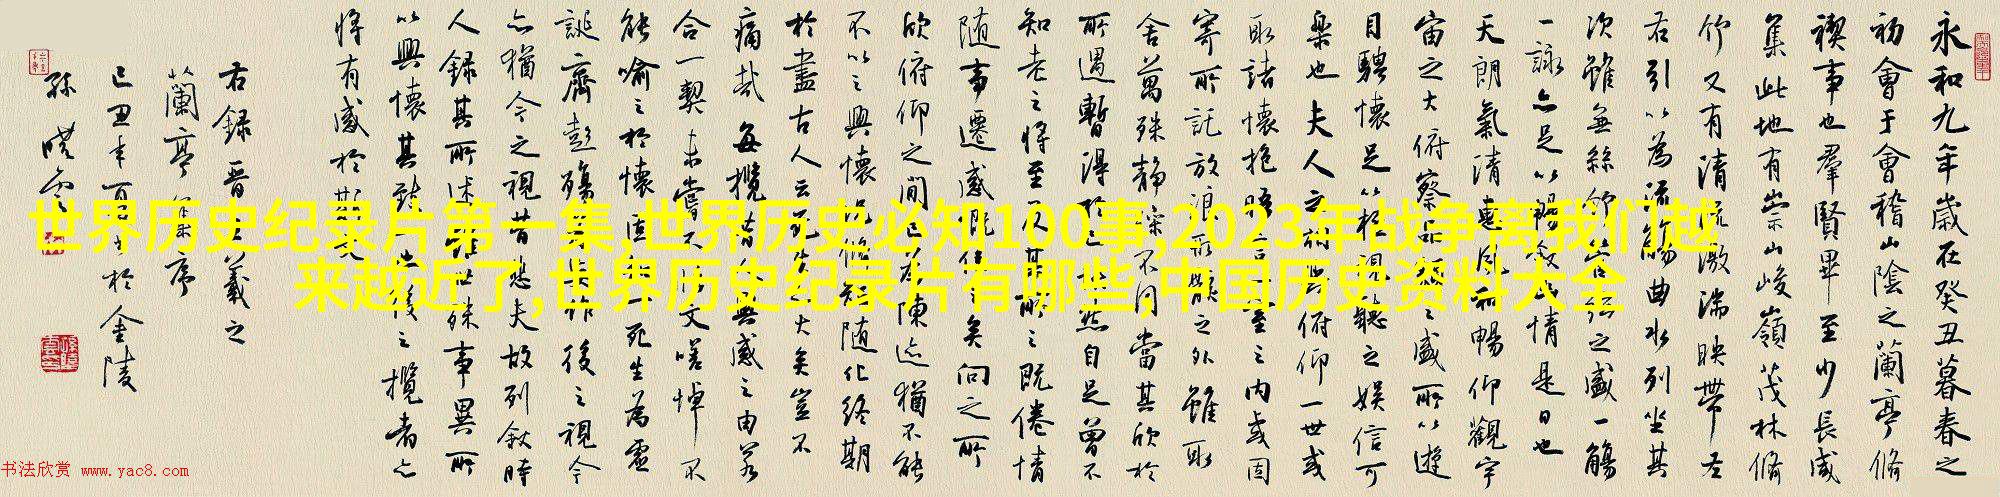 永和九年歲在癸丑暮春之
初會于會稽山陰之蘭亭脩
禊事也羣賢畢至少長咸
集此地有崇山峻嶺茂林脩
竹又有清流激湍映帶左
右引以為流觴曲水列坐其
次雖無絲竹管弦之盛一觴
一詠亦足以暢敘幽情是日也
天朗氣清惠風和暢仰觀宇
宙之大俯察品類之盛所以遊
目騁懷足以極視聽之娛信可
樂也夫人之相與俯仰一世或
取諸懷抱晤言一室之內或因
寄所託放浪形骸之外雖取
舍萬殊靜躁不同當其欣於
所遇暫得於己快然自足曾不
知老之將至及其所之既倦情
隨事遷感慨係之矣向之所
欣俯仰之間已為陳迹猶不能
不以之興懷況脩短隨化終期
於盡古人云死生之大矣豈不
痛哉每攬昔人興感之由若
合一契未嘗不臨文嗟悼不
能喻之於懷固知一死生為虛
誕齊彭殤為妄作後之視今
亦猶今之視昔悲夫故列敘時
人錄其所述雖世殊事異所
以興懷其致一也後之攬者亦
將有感於斯文
右錄晉王羲之
蘭亭集序
己丑年夏於金陵
孫曉雲
世界历史纪录片第一集,世界历史必知100事,2023年战争离我们越
来越近了,世界历史纪录片有哪些,中国历史资料大全
书法欣赏 www.yac8.com